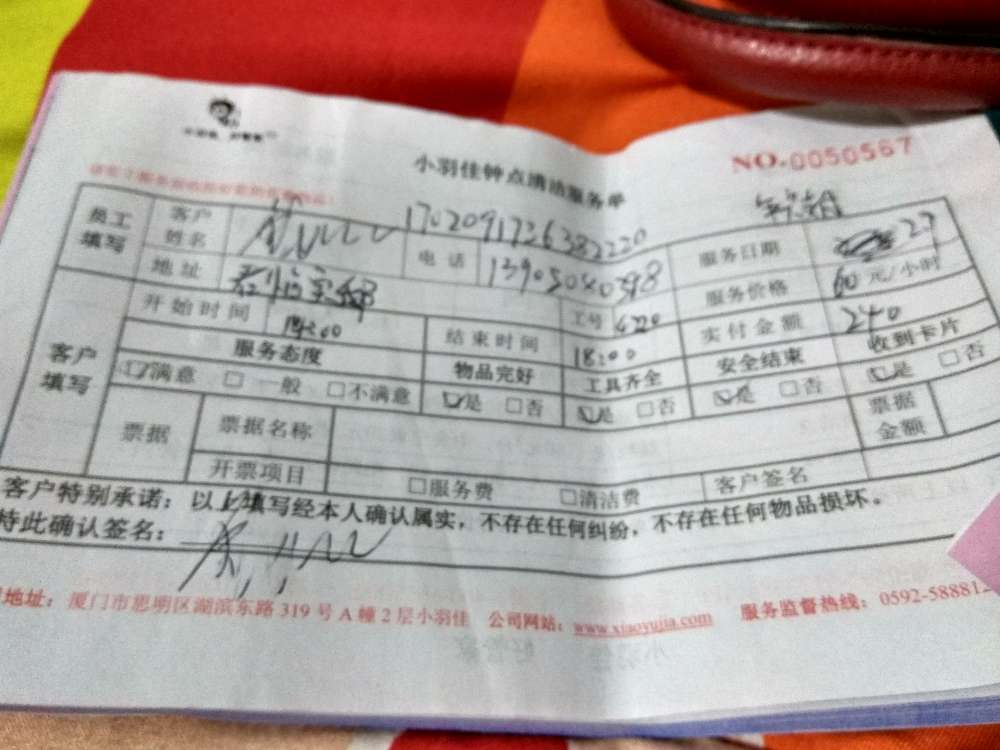 NO.0050567
小羽佳钟点清洁服务单
员工填写 客户姓名 1702091726382220 服务日期 27
地址 电话 13905040598 服务价格 60 元/小时
工号 6220
客户填写 开始时间 14:00 结束时间 18:00 实付金额 240
服务态度 物品完好 工具齐全 安全结束 收到卡片
满意 一般 不满意 是 否 是 否 是 否 是 否
票据 票据名称 票据金额
开票项目 服务费 清洁费 客户签名
客户特别承诺：以上填写经本人确认属实，不存在任何纠纷，不存在任何物品损坏。
特此确认签名：
地址：厦门市思明区湖滨东路319号A幢2层小羽佳 公司网站：www.xiaoyujia.com 服务监督热线：0592-588812